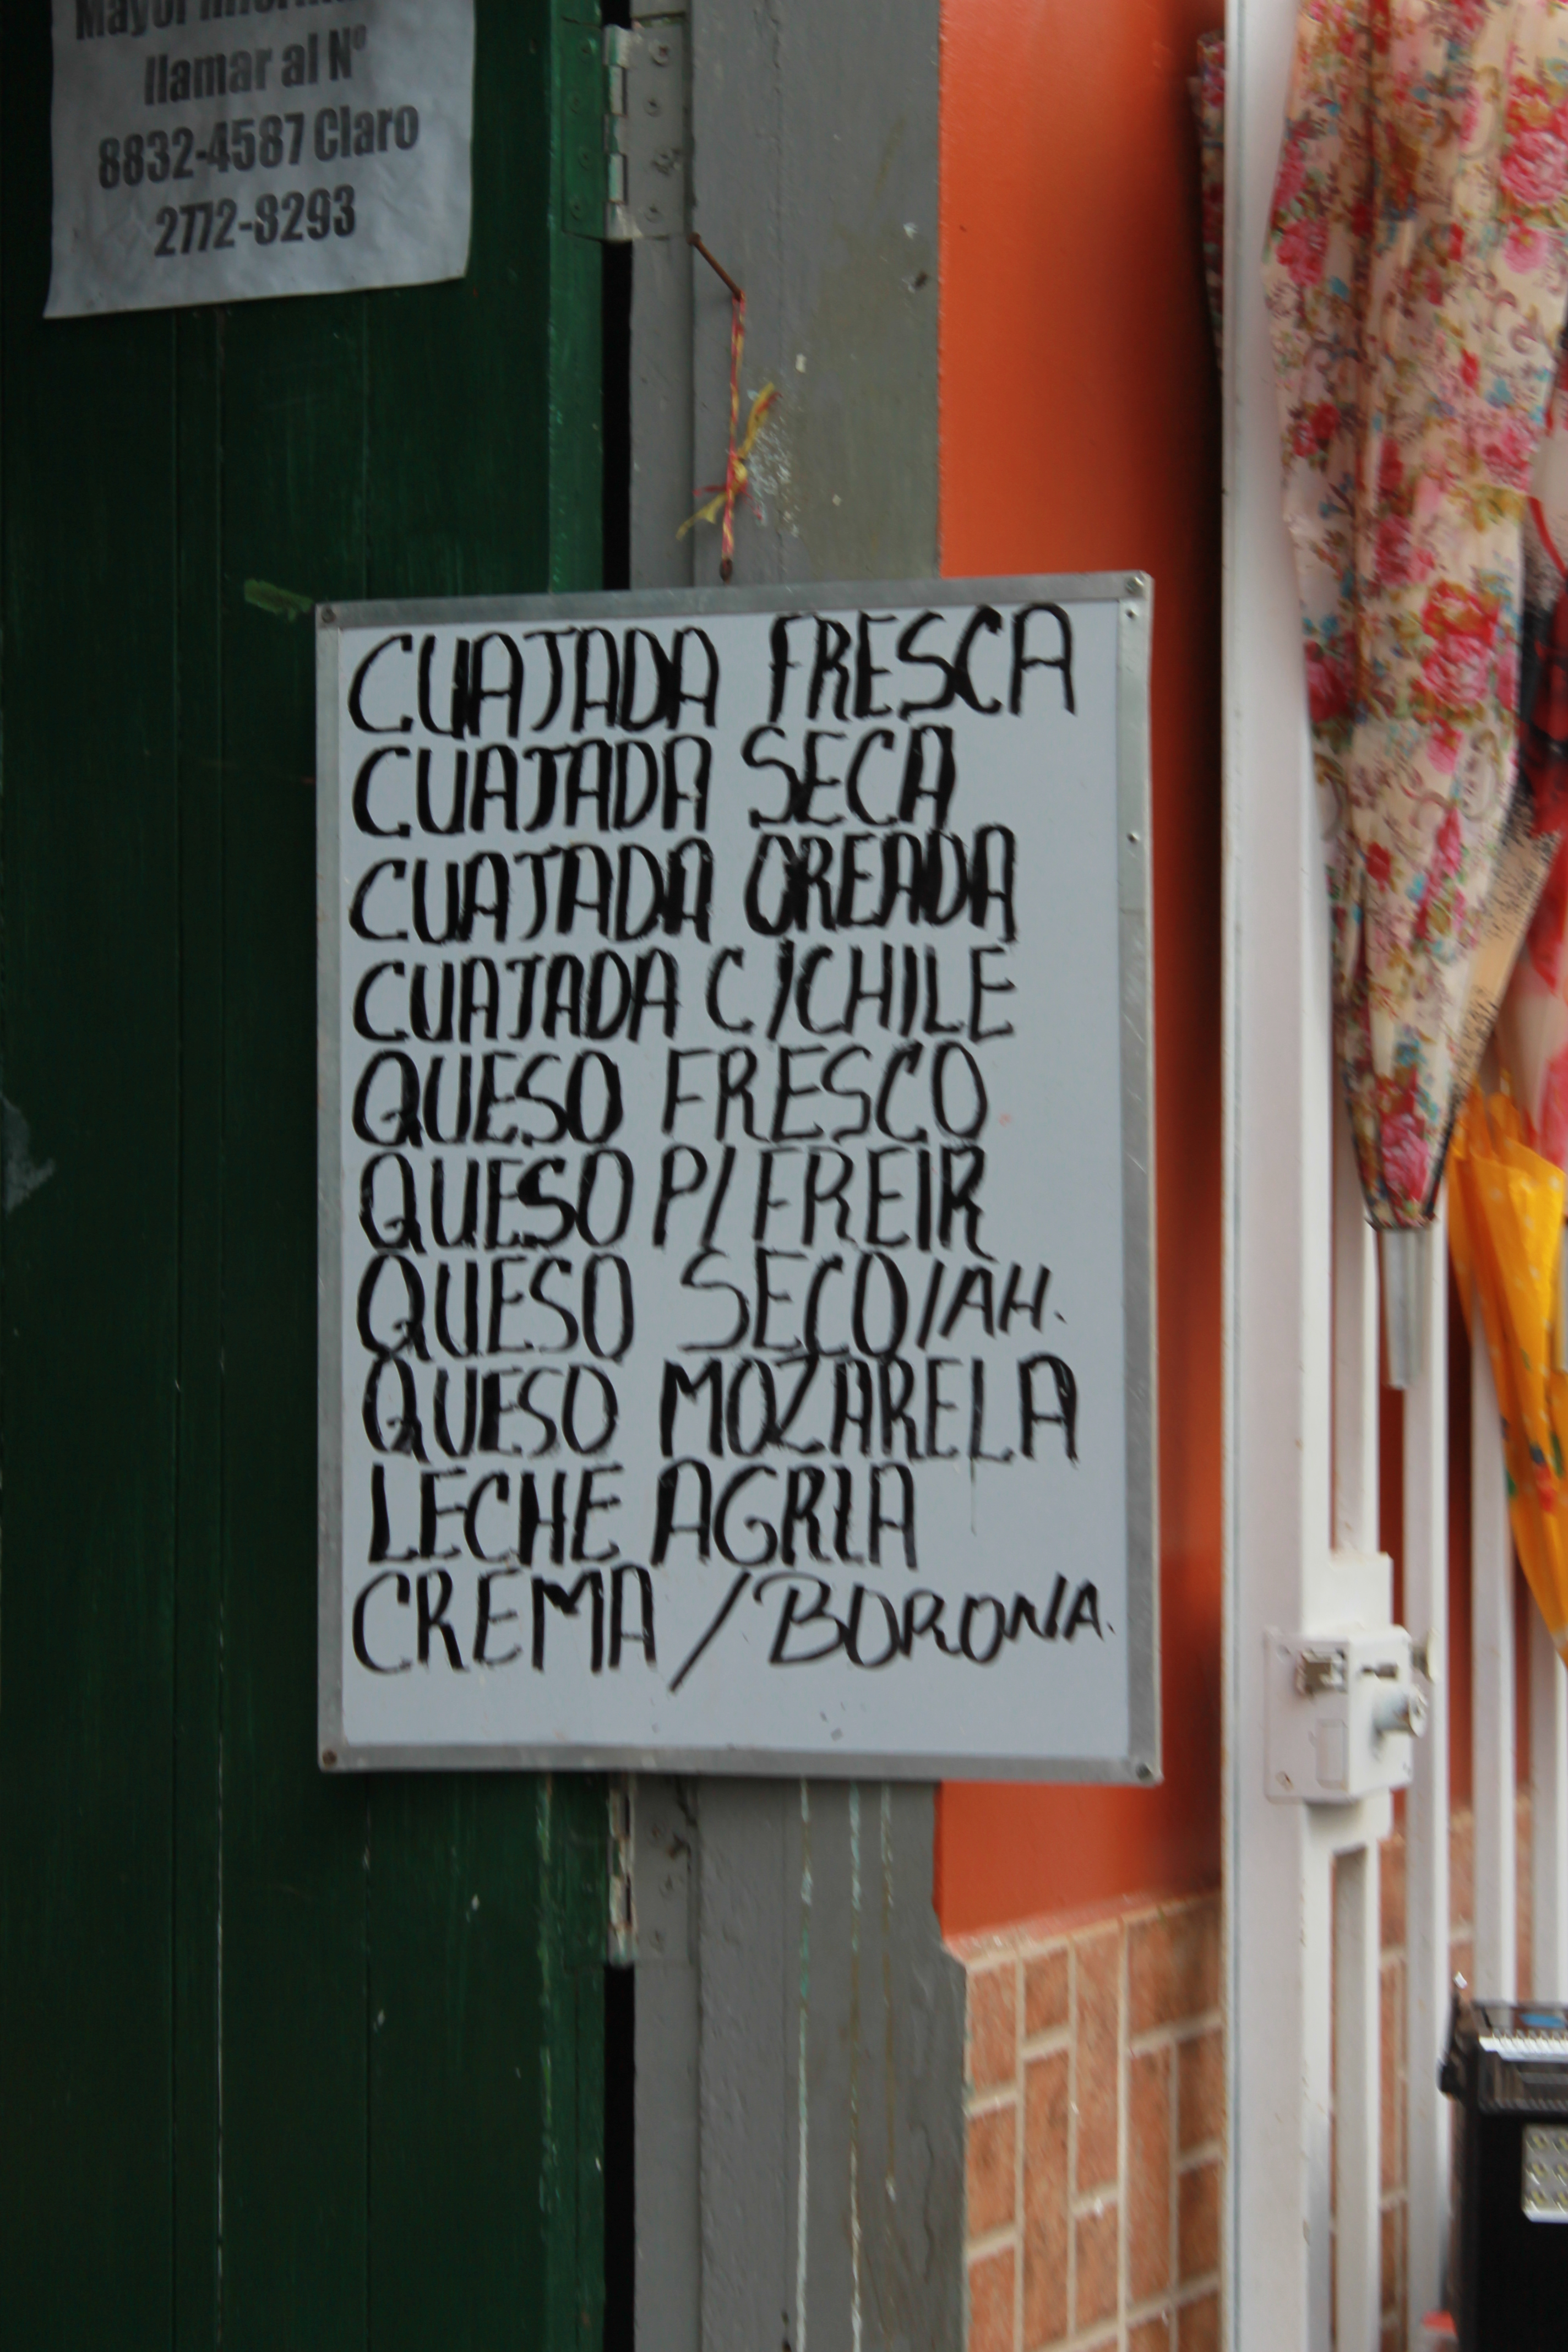 Mayor
llamar al Nº
8832-4587 Claro
2772-8293
CUAJADA FRESCA
CUAJADA SECA
CUAJADA OREADA
CUAJADA C/CHILE
QUESO FRESCO
QUESO P/FREIR
QUESO SECO/AH.
QUESO MOZARELA
LECHE AGRIA
CREMA / BORONA.